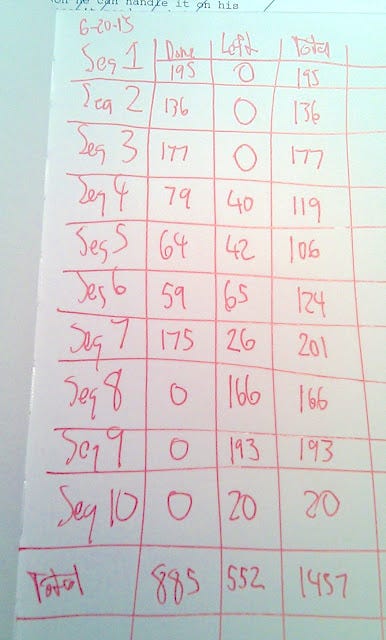 on he can handle it on his
6-20-15
Done Left Total
Seq 1 195 0 195
Seq 2 136 0 136
Seq 3 177 0 177
Seq 4 79 40 119
Seq 5 64 42 106
Seq 6 59 65 124
Seq 7 175 26 201
Seq 8 0 166 166
Seq 9 0 193 193
Seq 10 0 20 20
Total 885 552 1437